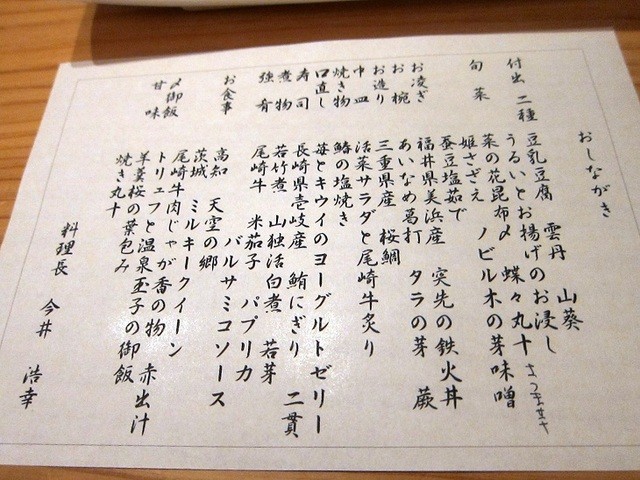 おしながき
付出 二種 豆乳豆腐 雲丹 山葵
うるいとお揚げのお浸し
旬菜 菜の花昆布〆 蝶々丸十 さつまいも
姫さざえ ノビル木の芽味噌
蚕豆塩茹で
お凌ぎ 福井県美浜産 実先の鉄火丼
お椀 あいなめ葛打 タラの芽 蕨
お造り 三重県産 桜鯛
中皿 活菜サラダと尾崎牛炙り
焼き物 鰆の塩焼き
口直し 苺とキウイのヨーグルトゼリー
寿司 長崎県壱岐産 鮪にぎり 二貫
煮物 若竹煮 山独活白煮 若芽
強肴 尾崎牛 米茄子 パプリカ
バルサミコソース
お食事 高知 天空の郷
茨城 ミルキークイーン
尾崎牛肉じゃが香の物 赤出汁
〆御飯 トリュフと温泉玉子の御飯
甘味 羊羹桜の葉包み
焼き丸十
料理長 今井 浩幸